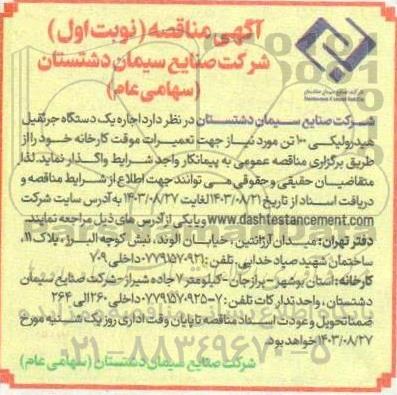 آگهی مناقصه (نوبت اول)
شرکت صنایع سیمان دشتستان
(سهامی عام)
شرکت صنایع سیمان دشتستان در نظر دارد اجاره یک دستگاه جرثقیل
هیدرولیکی ۱۰۰ تن مورد نیاز جهت تعمیرات موقت کارخانه خود را از
طریق برگزاری مناقصه عمومی به پیمانکار واجد شرایط واگذار نماید. لذا
متقاضیان حقیقی و حقوقی می توانند جهت اطلاع از شرایط مناقصه و
دریافت اسناد از تاریخ ۱۴۰۳/۰۸/۲۱ لغایت ۱۴۰۳/۰۸/۲۷ به آدرس سایت شرکت
www.dashtestancement.com و یا یکی از آدرس های ذیل مراجعه نمایند.
دفتر تهران: میدان آرژانتین، خیابان الوند، نبش کوچه البرز، پلاک ۱۱،
ساختمان شهید صیاد خدایی. تلفن: ۰۷۷۹۱۵۷۰۹۲۱ داخلی ۷۰۹
کارخانه: استان بوشهر- برازجان- کیلومتر ۷ جاده شیراز- شرکت صنایع سیمان
دشتستان، واحد تدارکات تلفن: ۷-۰۷۷۹۱۵۷۰۹۲۵ داخلی ۲۶۰ الی ۲۶۴
ضمنا تحویل و عودت اسناد مناقصه تا پایان وقت اداری روز یک شنبه مورخ
۱۴۰۳/۰۸/۲۷ خواهد بود.
شرکت صنایع سیمان دشتستان (سهامی عام)
۰۲۱-۸۸۳۴۹۶۷۰-۵